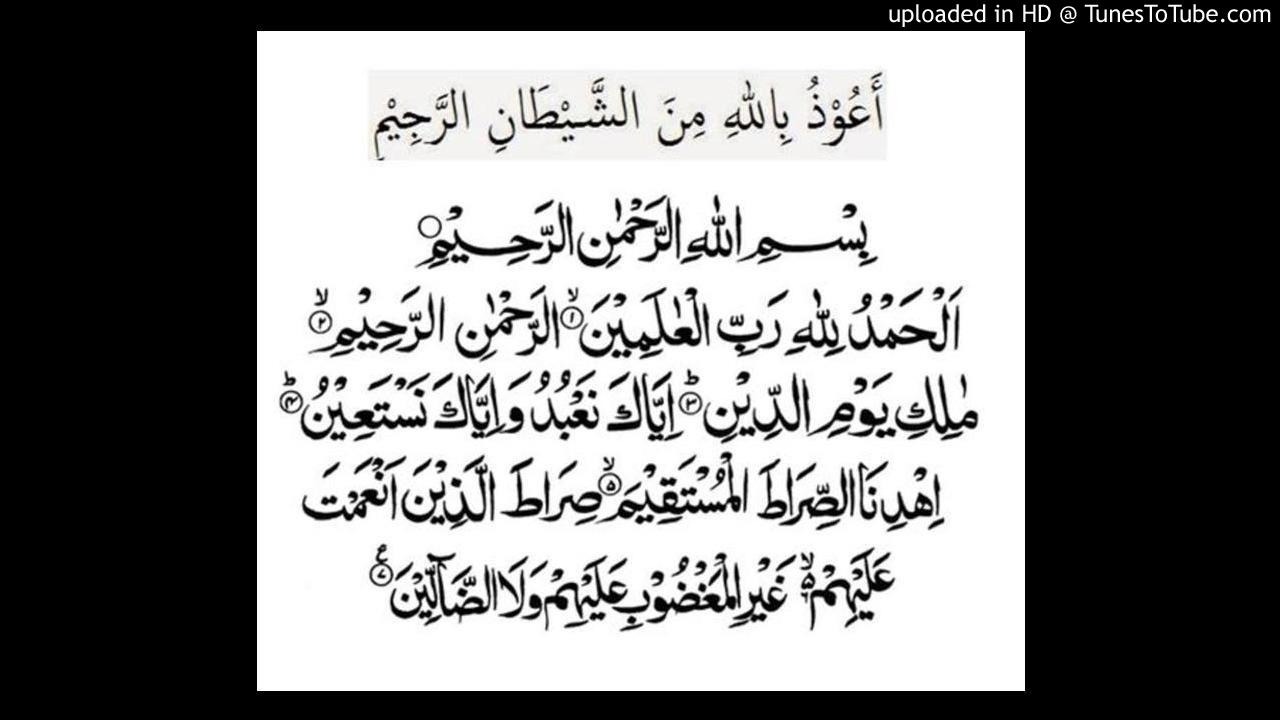 uploaded in HD @ TunesToTube.com
أَعُوْذُ بِاللهِ مِنَ الشَّيْطَانِ الرَّجِيْمِ
بِسْمِ اللهِ الرَّحْمٰنِ الرَّحِيْمِ ○
اَلْحَمْدُ لِلّٰهِ رَبِّ الْعٰلَمِيْنَ ۙ﴿۱﴾ الرَّحْمٰنِ الرَّحِيْمِ ۙ﴿۲﴾
مٰلِكِ يَوْمِ الدِّيْنِ ؕ﴿۳﴾ اِيَّاكَ نَعْبُدُ وَاِيَّاكَ نَسْتَعِيْنُ ؕ﴿۴﴾
اِهْدِنَا الصِّرَاطَ الْمُسْتَقِيْمَ ۙ﴿۵﴾ صِرَاطَ الَّذِيْنَ اَنْعَمْتَ
عَلَيْهِمْ ۙ۬ۦ غَيْرِ الْمَغْضُوْبِ عَلَيْهِمْ وَلَا الضَّآلِّيْنَ ﴿۷﴾ ع